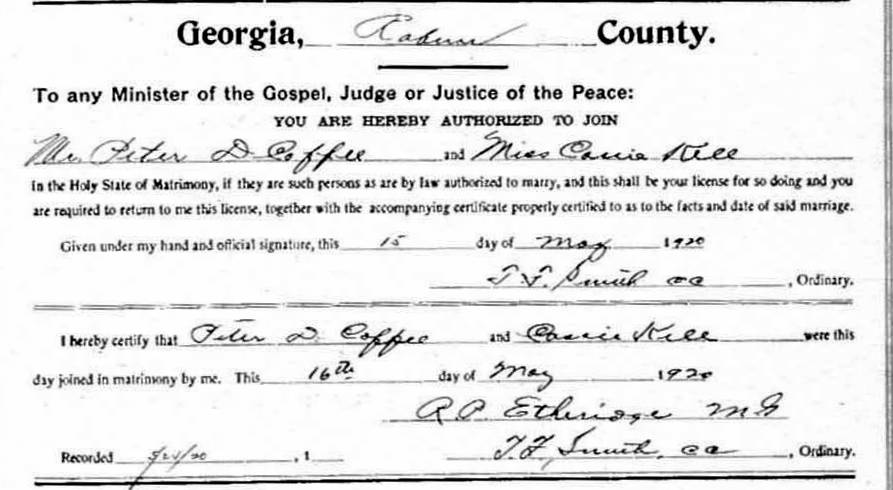 Georgia, Rabun County.
To any Minister of the Gospel, Judge or Justice of the Peace:
YOU ARE HEREBY AUTHORIZED TO JOIN
Mr. Peter D Coffee and Miss Cassie Kell
in the Holy State of Matrimony, if they are such persons as are by law authorized to marry, and this shall be your license for so doing and you
are required to return to me this license, together with the accompanying certificate properly certified to as to the facts and date of said marriage.
Given under my hand and official signature, this 15 day of May 1920
T. F. Smith , Ordinary.
I hereby certify that Peter D. Coffee and Cassie Kell were this
day joined in matrimony by me. This 16th day of May 1920
R. P. Etheridge M G
Recorded , 1 T. F. Smith, , Ordinary.